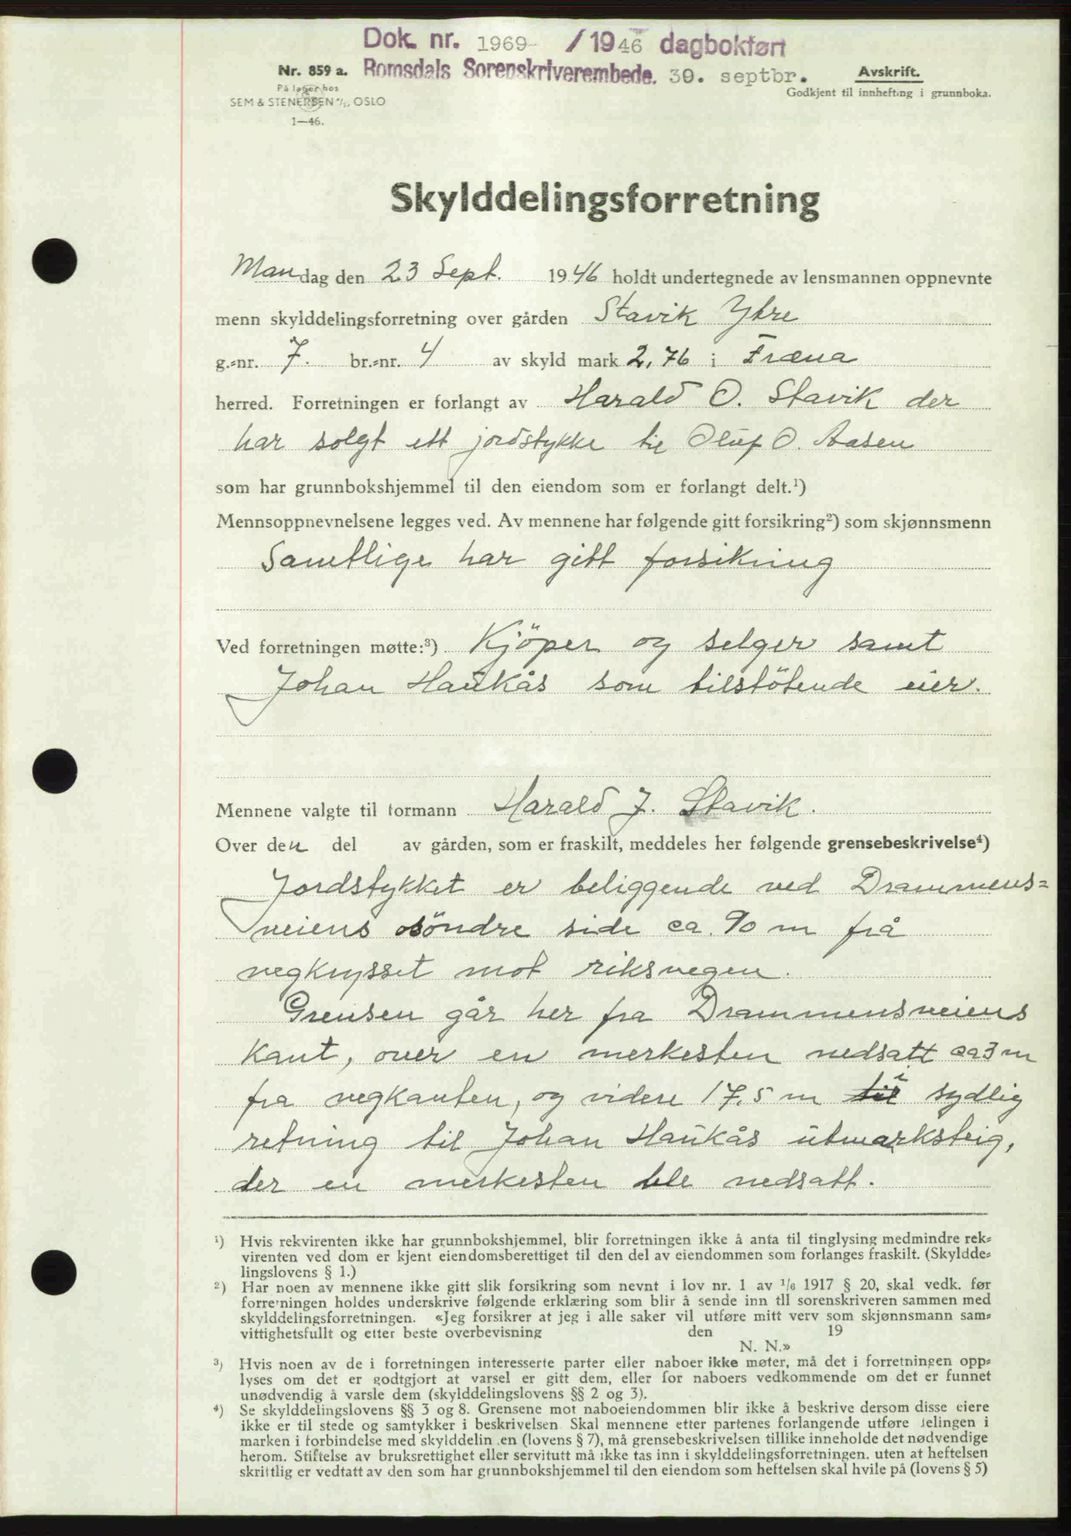 Dok. nr. 1969 /1946 dagbokført
Nr. 859 a. Romsdals Sorenskriverembede. 30. septbr. Avskrift.
På lager hos Godkjent til innhefting i grunnboka.
SEM & STENERSEN A/S, OSLO
1—46.
Skylddelingsforretning
Mandag den 23 Sept. 1946 holdt undertegnede av lensmannen oppnevnte
menn skylddelingsforretning over gården Stavik Ytre
g.-nr. 7. br.-nr. 4 av skyld mark 2,76 i Fræna
herred. Forretningen er forlangt av Harald O. Stavik der
har solgt ett jordstykke til Oluf O. Aasen
som har grunnbokshjemmel til den eiendom som er forlangt delt.¹)
Mennsoppnevnelsene legges ved. Av mennene har følgende gitt forsikring²) som skjønnsmenn
Samtlige har gitt forsikring
Ved forretningen møtte:³) Kjöper og selger samt
Johan Haukås som tilstötende eier.
Mennene valgte til formann Harald J. Stavik.
Over den del av gården, som er fraskilt, meddeles her følgende grensebeskrivelse⁴)
Jordstykket er beliggende ved Drammens=
veiens söndre side ca. 90 m frå
vegkrysset mot riksvegen.
Grensen går her fra Drammensveiens
kant, over en merkesten nedsatt ca 3 m
fra vegkanten, og videre 17,5 m i sydlig
retning til Johan Haukås utmarksteig,
der en merkesten ble nedsatt.
¹) Hvis rekvirenten ikke har grunnbokshjemmel, blir forretningen ikke å anta til tinglysing medmindre rek-
virenten ved dom er kjent eiendomsberettiget til den del av eiendommen som forlanges fraskilt. (Skyldde-
lingslovens § 1.)
²) Har noen av mennene ikke gitt slik forsikring som nevnt i lov nr. 1 av 1/6 1917 § 20, skal vedk. før
forretningen holdes underskrive følgende erklæring som blir å sende inn til sorenskriveren sammen med
skylddelingsforretningen. «Jeg forsikrer at jeg i alle saker vil utføre mitt verv som skjønnsmann sam-
vittighetsfullt og etter beste overbevisning den 19
N. N.»
³) Hvis noen av de i forretningen interesserte parter eller naboer ikke møter, må det i forretningen opp-
lyses om det er godtgjort at varsel er gitt dem, eller for naboers vedkommende om det er funnet
unødvendig å varsle dem (skylddelingslovens §§ 2 og 3).
⁴) Se skylddelingslovens §§ 3 og 8. Grensene mot naboeiendommen blir ikke å beskrive dersom disse eiere
ikke er til stede og samtykker i beskrivelsen. Skal mennene etter partenes forlangende utføre delingen i
marken i forbindelse med skylddelingen (lovens § 7), må grensebeskrivelsen tillike inneholde det nødvendige
herom. Stiftelse av bruksrettighet eller servitutt må ikke tas inn i skylddelingsforretningen, uten at heftelsen
skriftlig er vedtatt av den som har grunnbokshjemmel til den eiendom som heftelsen skal hvile på (lovens § 5)